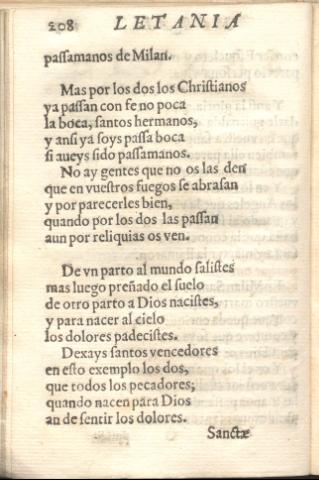 208 LETANIA
paſſamanos de Milan.
Mas por los dos los Chriſtianos
ya paſſan con fe no poca
la boca, ſantos hermanos,
y anſi ya ſoys paſſa boca
ſi aueys ſido paſſamanos.
No ay gentes que no os las den
que en vueſtros fuegos ſe abraſan
y por parecerles bien,
quando por los dos las paſſan
aun por reliquias os ven.
De vn parto al mundo ſaliſtes
mas luego preñado el ſuelo
de otro parto a Dios naciſtes,
y para nacer al cielo
los dolores padeciſtes.
Dexays ſantos vencedores
en eſto exemplo los dos,
que todos los pecadores;
quando nacen para Dios
an de ſentir los dolores.
Sanctæ